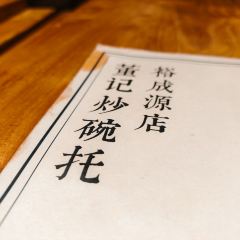 裕成源店
董记炒碗托